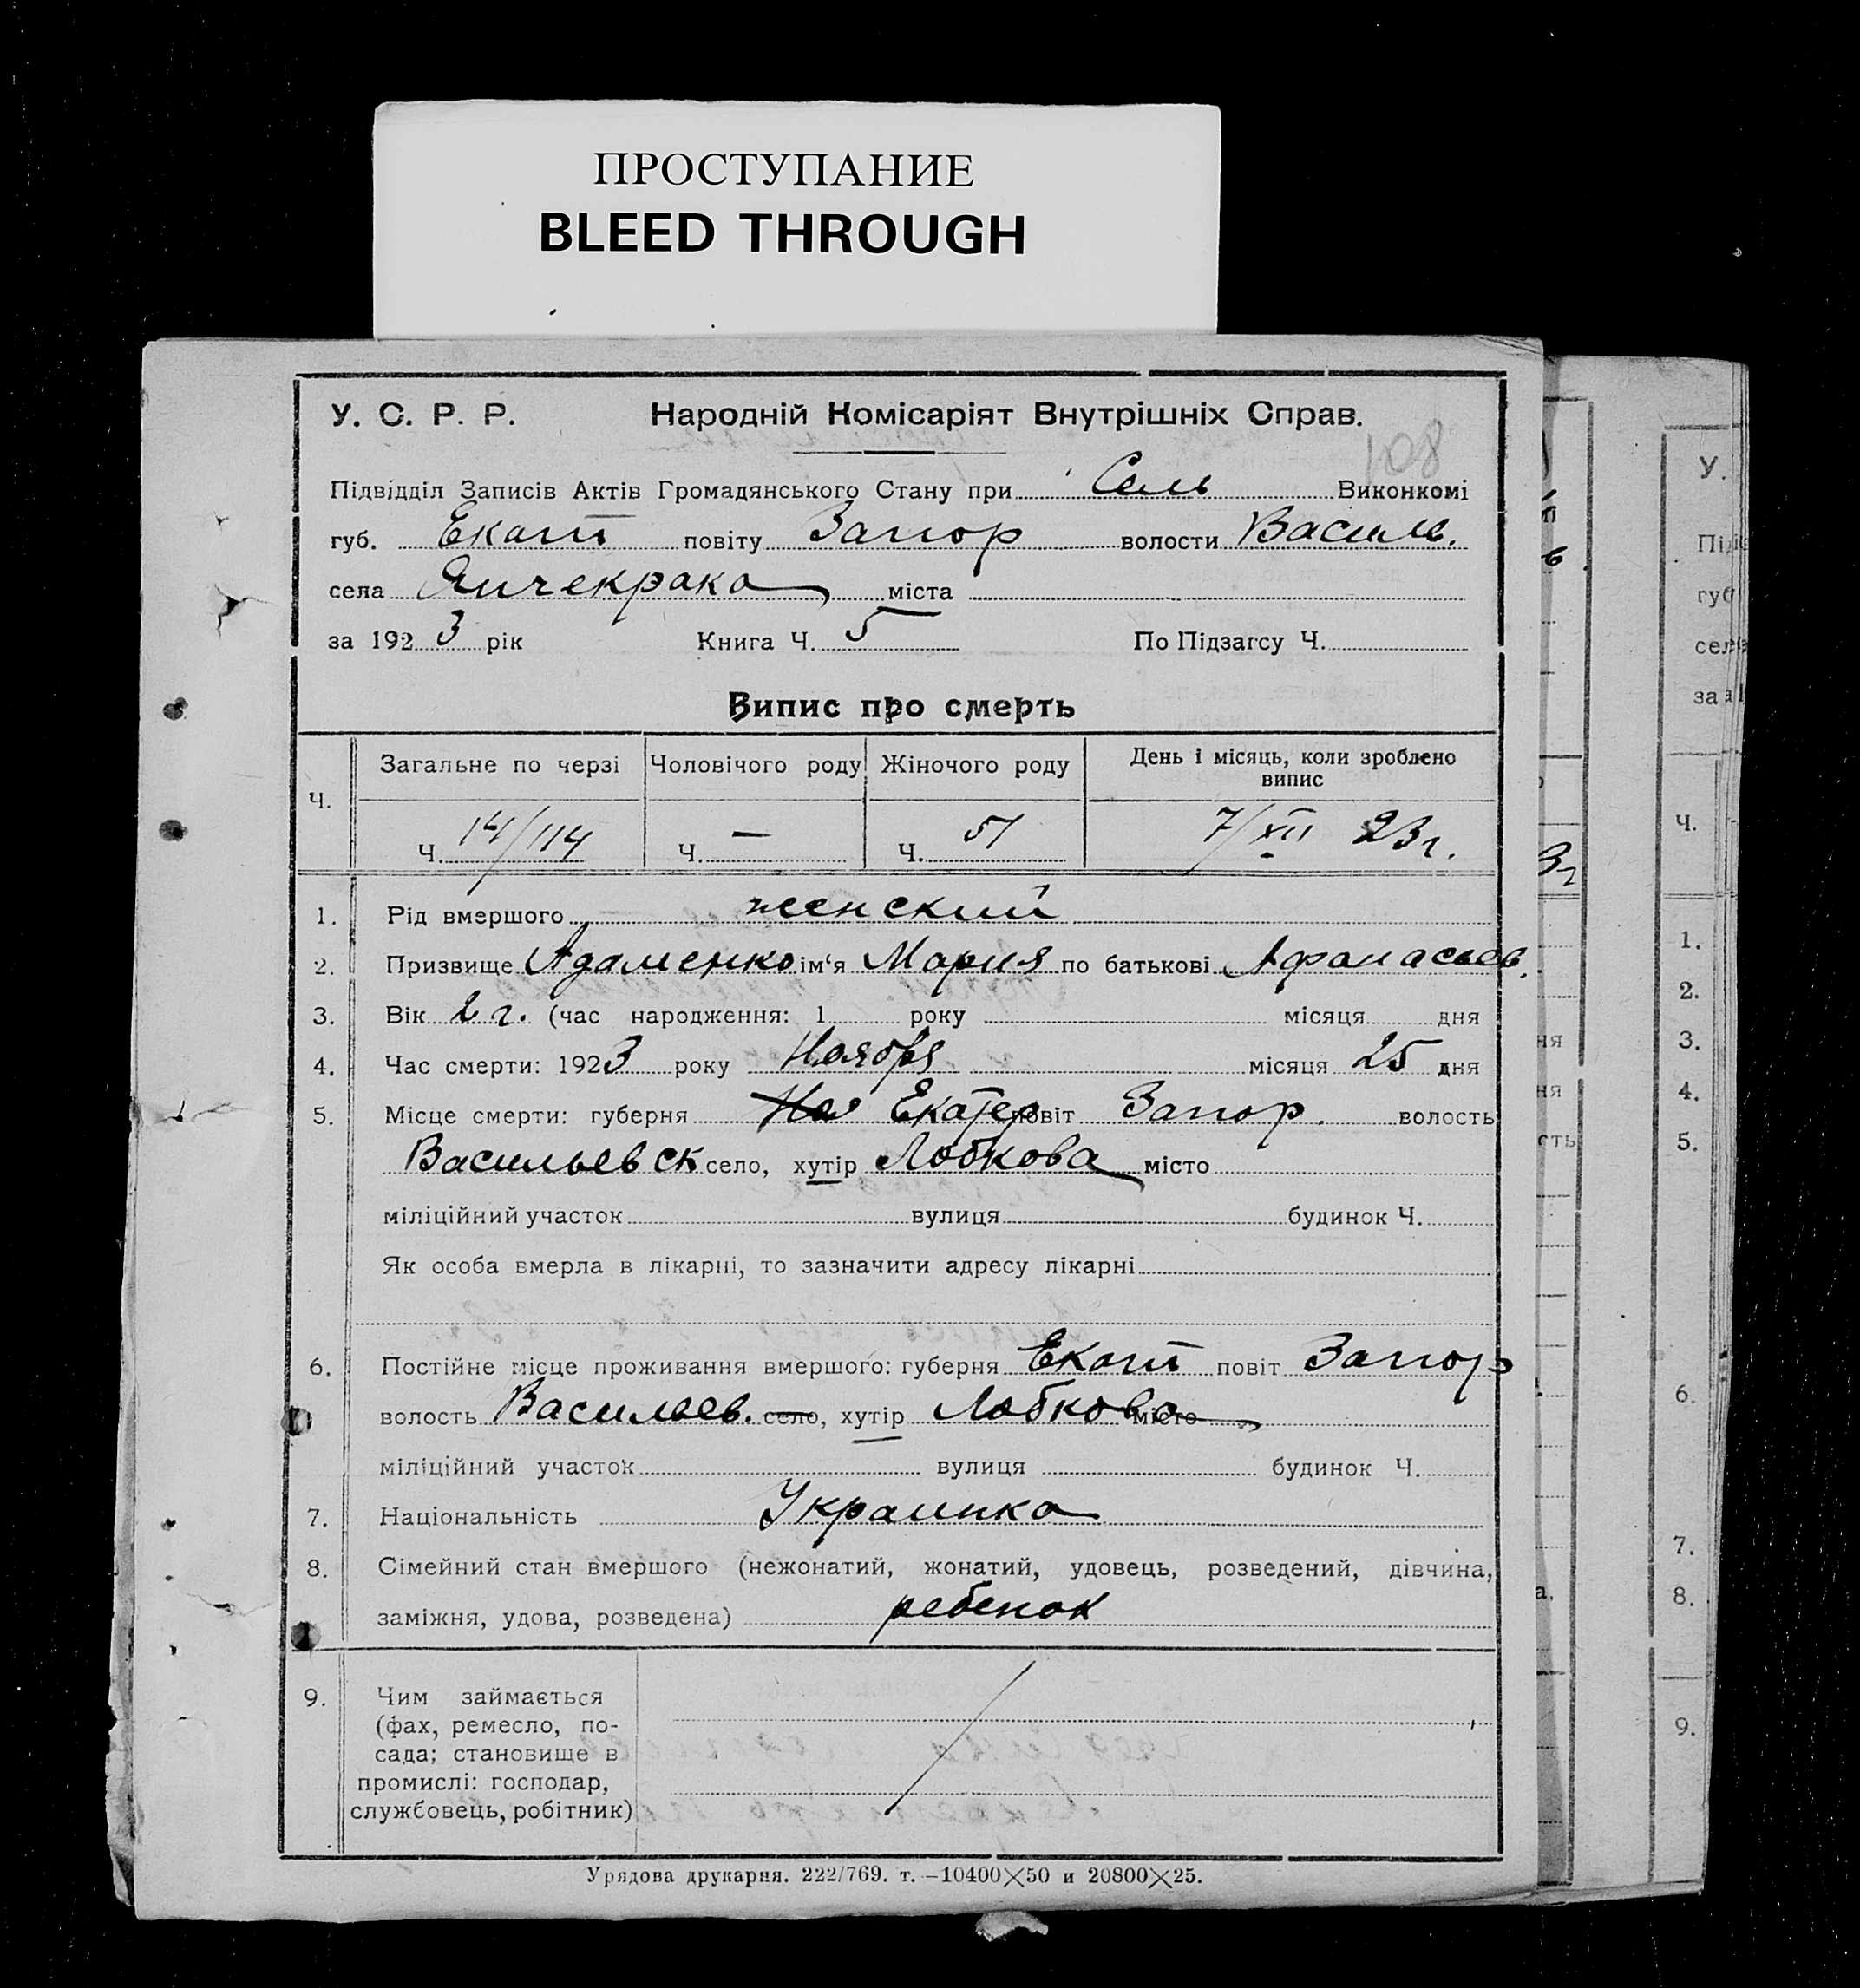 ПРОСТУПАНИЕ
BLEED THROUGH
У. С. Р. Р. Народній Комісаріят Внутрішніх Справ.
108
Підвідділ Записів Актів Громадянського Стану при Сель Виконкомі
губ. Екат повіту Запор волости Василь.
села Янчекрака міста
за 1923 рік Книга Ч. 5 По Підзагсу Ч.
Випис про смерть
Ч. Загальне по черзі Чоловічого роду Жіночого роду День і місяць, коли зроблено випис
Ч. 14/114 Ч. — Ч. 51 7/XII 23г.
1. Рід вмершого женский
2. Призвище Адаменко ім'я Мария по батькові Афанасьев.
3. Вік 2 г. (час народження: 1 року місяця дня
4. Час смерти: 1923 року Ноября місяця 25 дня
5. Місце смерти: губерня Ноя Екатер повіт Запор. волость
Васильевск село, хутір Лобкова місто
міліційний участок вулиця будинок Ч.
Як особа вмерла в лікарні, то зазначити адресу лікарні
6. Постійне місце проживання вмершого: губерня Екат повіт Запор
волость Васильев. село, хутір Лобкова місто
міліційний участок вулиця будинок Ч.
7. Національність Украинка
8. Сімейний стан вмершого (нежонатий, жонатий, удовець, розведений, дівчина,
заміжня, удова, розведена) ребенок
9. Чим займається
(фах, ремесло, по-
сада; становище в
промислі: господар,
службовець, робітник)
Урядова друкарня. 222/769. т. –10400×50 и 20800×25.
У.
губ
села
за 1
Ч.
1.
2.
3.
4.
5.
6.
7.
8.
9.